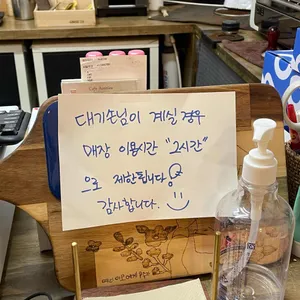 대기손님이 계실 경우
매장 이용시간 "2시간"
으로 제한됩니다!
감사합니다.